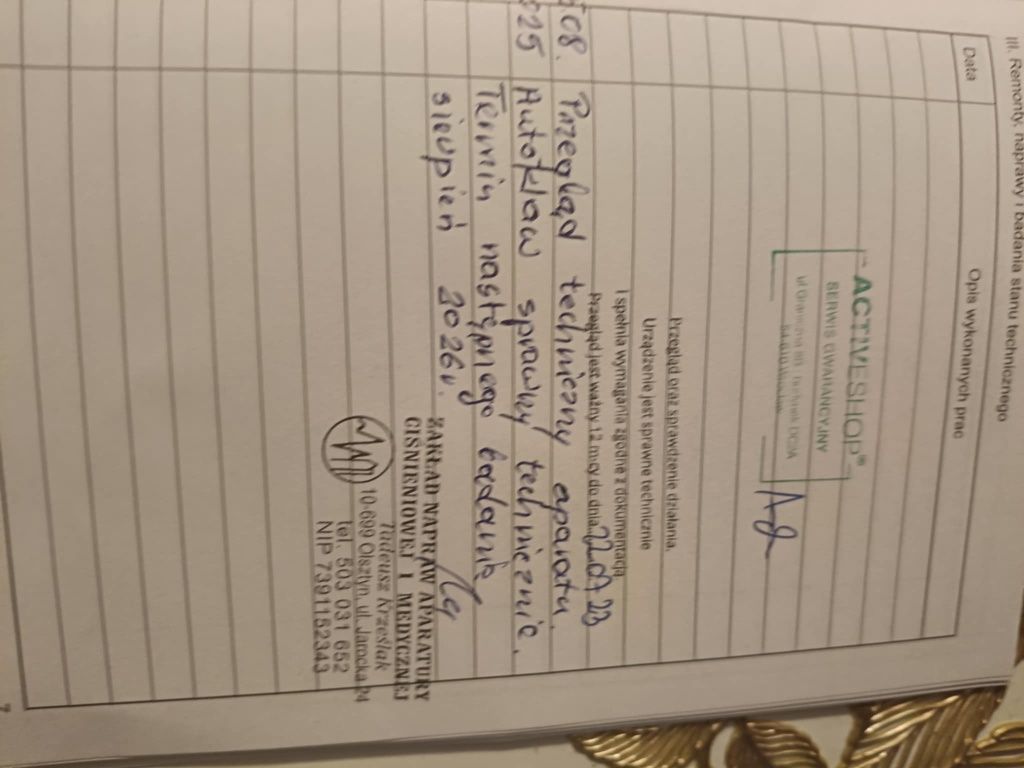 III. Remonty, naprawy i badania stanu technicznego
Data
Opis wykonanych prac
ACTIVESHOP®
SERWIS GWARANCYJNY
Przegląd oraz sprawdzenie działania.
Urządzenie jest sprawne technicznie
i spełnia wymagania zgodne z dokumentacją
Przegląd jest ważny 12 m-cy do dnia
08. Przegląd techniczny aparatu.
Autoklaw sprawny technicznie.
Termin następnego badania
sierpień 2026r.
ZAKŁAD NAPRAW APARATURY
CIŚNIENIOWEJ I MEDYCZNEJ
Tadeusz Krześlak
10-699 Olsztyn, ul. Jarocka 24
tel. 503 031 652
NIP 7391152343
7